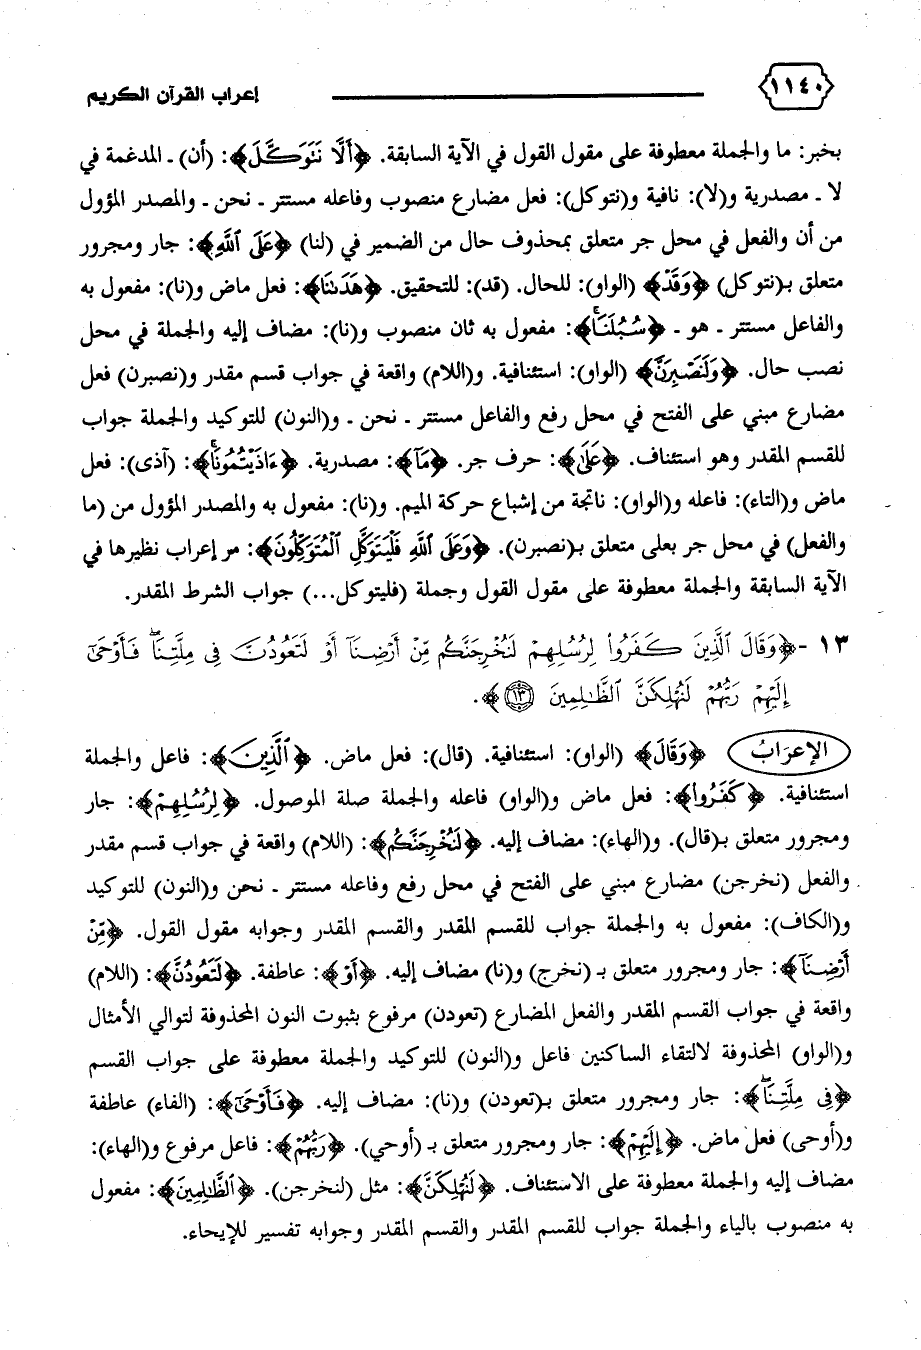 ١١٤٠ إعراب القرآن الكريم
بخبر: ما والجملة معطوفة على مقول القول في الآية السابقة. ﴿أَلَّا نَتَوَكَّلَ﴾: (أن) ـ المدغمة في
لا ـ مصدرية و(لا): نافية و(نتوكل): فعل مضارع منصوب وفاعله مستتر ـ نحن ـ والمصدر المؤول
من أن والفعل في محل جر متعلق بمحذوف حال من الضمير في (لنا) ﴿عَلَى ٱللَّهِ﴾: جار ومجرور
متعلق بـ(نتوكل) ﴿وَقَدْ﴾ (الواو): للحال. (قد): للتحقيق. ﴿هَدَىٰنَا﴾: فعل ماض و(نا): مفعول به
والفاعل مستتر ـ هو ـ ﴿سُبُلَنَا﴾: مفعول به ثان منصوب و(نا): مضاف إليه والجملة في محل
نصب حال. ﴿وَلَنَصْبِرَنَّ﴾ (الواو): استئنافية. و(اللام) واقعة في جواب قسم مقدر و(نصبرن) فعل
مضارع مبني على الفتح في محل رفع والفاعل مستتر ـ نحن ـ و(النون) للتوكيد والجملة جواب
للقسم المقدر وهو استئناف. ﴿عَلَىٰ﴾: حرف جر. ﴿مَآ﴾: مصدرية. ﴿ءَاذَيْتُمُونَا﴾: (آذى): فعل
ماض و(التاء): فاعله و(الواو): ناتجة من إشباع حركة الميم. و(نا): مفعول به والمصدر المؤول من (ما
والفعل) في محل جر بعلى متعلق بـ(نصبرن). ﴿وَعَلَى ٱللَّهِ فَلْيَتَوَكَّلِ ٱلْمُتَوَكِّلُونَ﴾: مر إعراب نظيرها في
الآية السابقة والجملة معطوفة على مقول القول وجملة (فليتوكل...) جواب الشرط المقدر.
١٣ -﴿وَقَالَ ٱلَّذِينَ كَفَرُوا۟ لِرُسُلِهِمْ لَنُخْرِجَنَّكُم مِّنْ أَرْضِنَآ أَوْ لَتَعُودُنَّ فِى مِلَّتِنَا ۖ فَأَوْحَىٰٓ
إِلَيْهِمْ رَبُّهُمْ لَنُهْلِكَنَّ ٱلظَّـٰلِمِينَ ١٣﴾.
الإعرابُ ﴿وَقَالَ﴾ (الواو): استئنافية. (قال): فعل ماض. ﴿ٱلَّذِينَ﴾: فاعل والجملة
استئنافية. ﴿كَفَرُوا۟﴾: فعل ماض و(الواو) فاعله والجملة صلة الموصول. ﴿لِرُسُلِهِمْ﴾: جار
ومجرور متعلق بـ(قال). و(الهاء): مضاف إليه. ﴿لَنُخْرِجَنَّكُم﴾: (اللام) واقعة في جواب قسم مقدر
والفعل (نخرجن) مضارع مبني على الفتح في محل رفع وفاعله مستتر ـ نحن و(النون) للتوكيد
و(الكاف): مفعول به والجملة جواب للقسم المقدر والقسم المقدر وجوابه مقول القول. ﴿مِّنْ
أَرْضِنَآ﴾: جار ومجرور متعلق بـ (نخرج) و(نا) مضاف إليه. ﴿أَوْ﴾: عاطفة. ﴿لَتَعُودُنَّ﴾: (اللام)
واقعة في جواب القسم المقدر والفعل المضارع (تعودن) مرفوع بثبوت النون المحذوفة لتوالي الأمثال
و(الواو) المحذوفة لالتقاء الساكنين فاعل و(النون) للتوكيد والجملة معطوفة على جواب القسم
﴿فِى مِلَّتِنَا ۖ﴾: جار ومجرور متعلق بـ(تعودن) و(نا): مضاف إليه. ﴿فَأَوْحَىٰٓ﴾: (الفاء) عاطفة
و(أوحى) فعل ماض. ﴿إِلَيْهِمْ﴾: جار ومجرور متعلق بـ (أوحي). ﴿رَبُّهُمْ﴾: فاعل مرفوع و(الهاء):
مضاف إليه والجملة معطوفة على الاستئناف. ﴿لَنُهْلِكَنَّ﴾: مثل (لنخرجن). ﴿ٱلظَّـٰلِمِينَ﴾: مفعول
به منصوب بالياء والجملة جواب للقسم المقدر والقسم المقدر وجوابه تفسير للإيحاء.